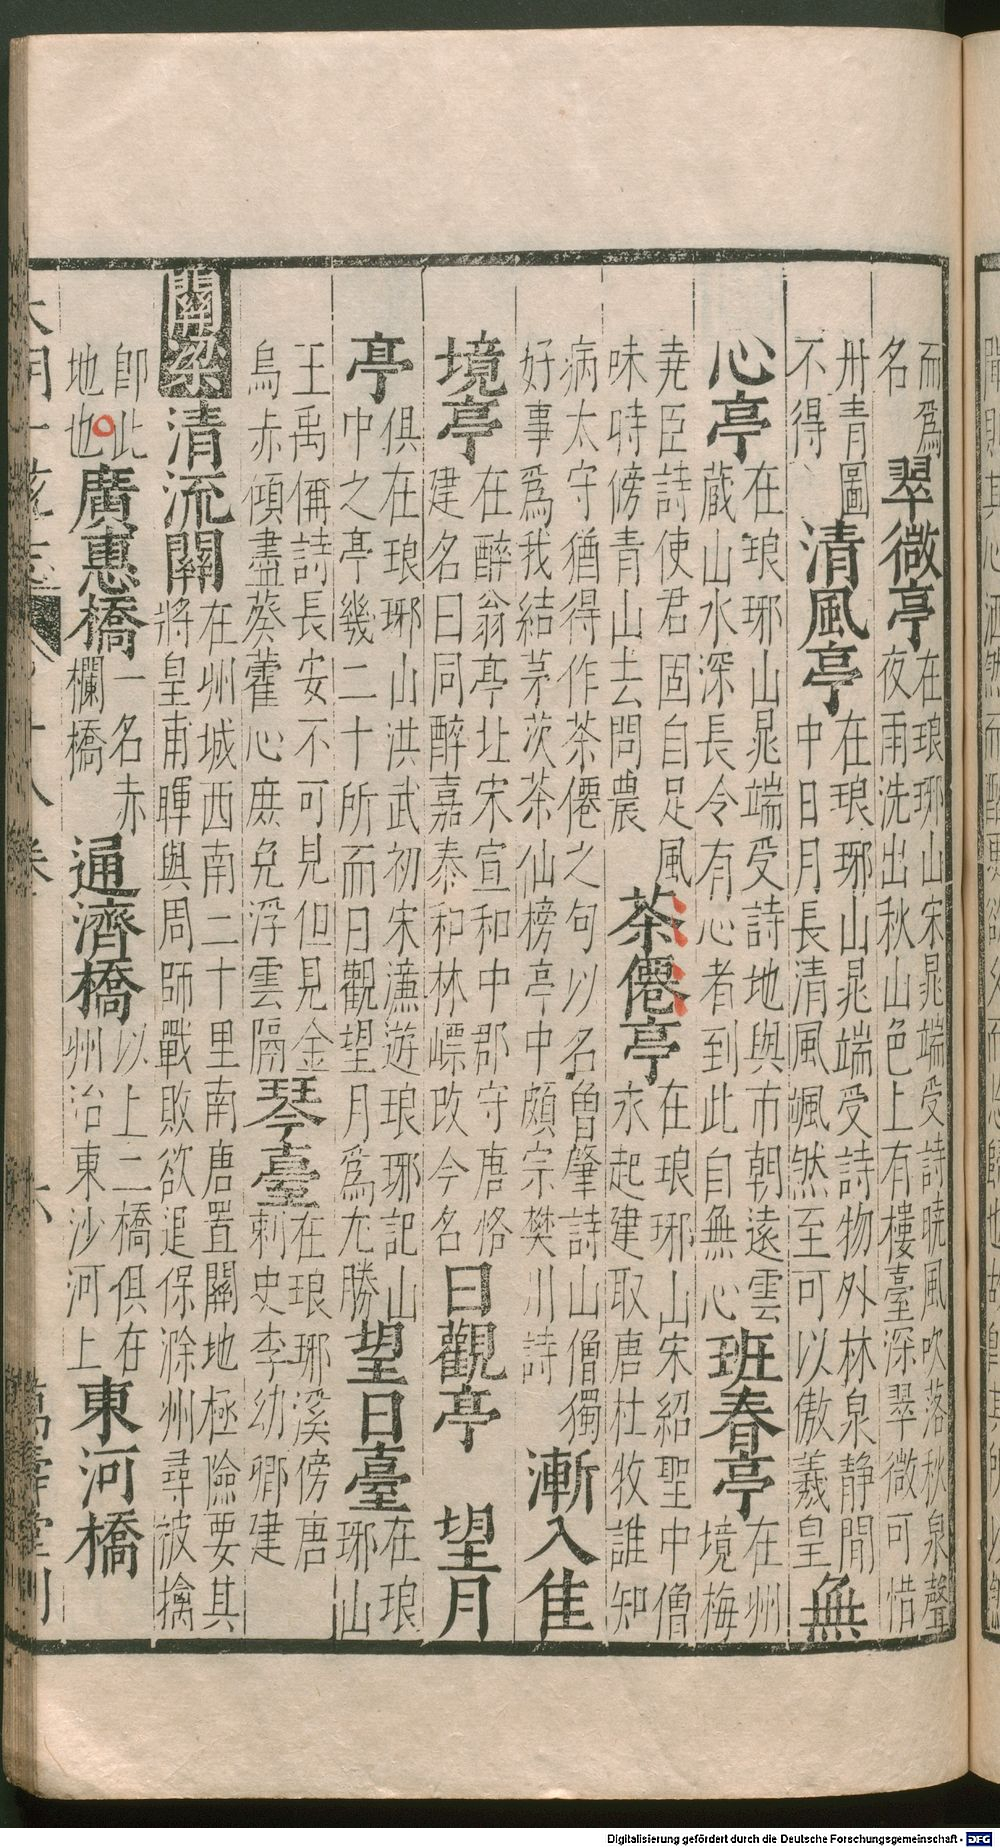 而爲
名
翠微亭
在琅琊山宋晁端受詩曉風吹落秋泉聲
夜雨洗出秋山色上有樓臺深翠微可惜
卅青圖
不得
清風亭
在琅琊山晁端受詩物外林泉静閒
中日月長清風颯然至可以傲羲皇
無
心亭
在琅琊山晁端受詩地與市朝遠雲
蔵山水深長令有心者到此自無心
班春亭
在州
境梅
堯臣詩使君固自足風
味時傍青山去問農
茶僊亭
在琅琊山宋紹聖中僧
永起建取唐杜牧誰知
病太守猶得作茶僊之句以名魯肇詩山僧獨
好事爲我結茅茨茶仙榜亭中頗宗樊川詩
漸入佳
境亭
在醉翁亭址宋宣和中郡守唐恪
建名曰同醉嘉泰和林㟽改今名
日觀亭
望月
亭
俱在琅琊山洪武初宋濂遊琅琊記山
中之亭幾二十所而日觀望月爲尤勝
望日臺
在琅
琊山
王禹偁詩長安不可見但見金
烏赤傾盡葵藿心庶免浮雲隔
琴臺
在琅琊溪傍唐
刺史李幼卿建
關梁
清流關
在州城西南二十里南唐置關地極險要其
將皇甫暉與周師戰敗欲退保滁州尋被擒
卽此
地也
廣惠橋
一名赤
欄橋
通濟橋
以上二橋俱在
州治東沙河上
東河橋
Digitalisierung gefördert durch die Deutsche Forschungsgemeinschaft - DFG